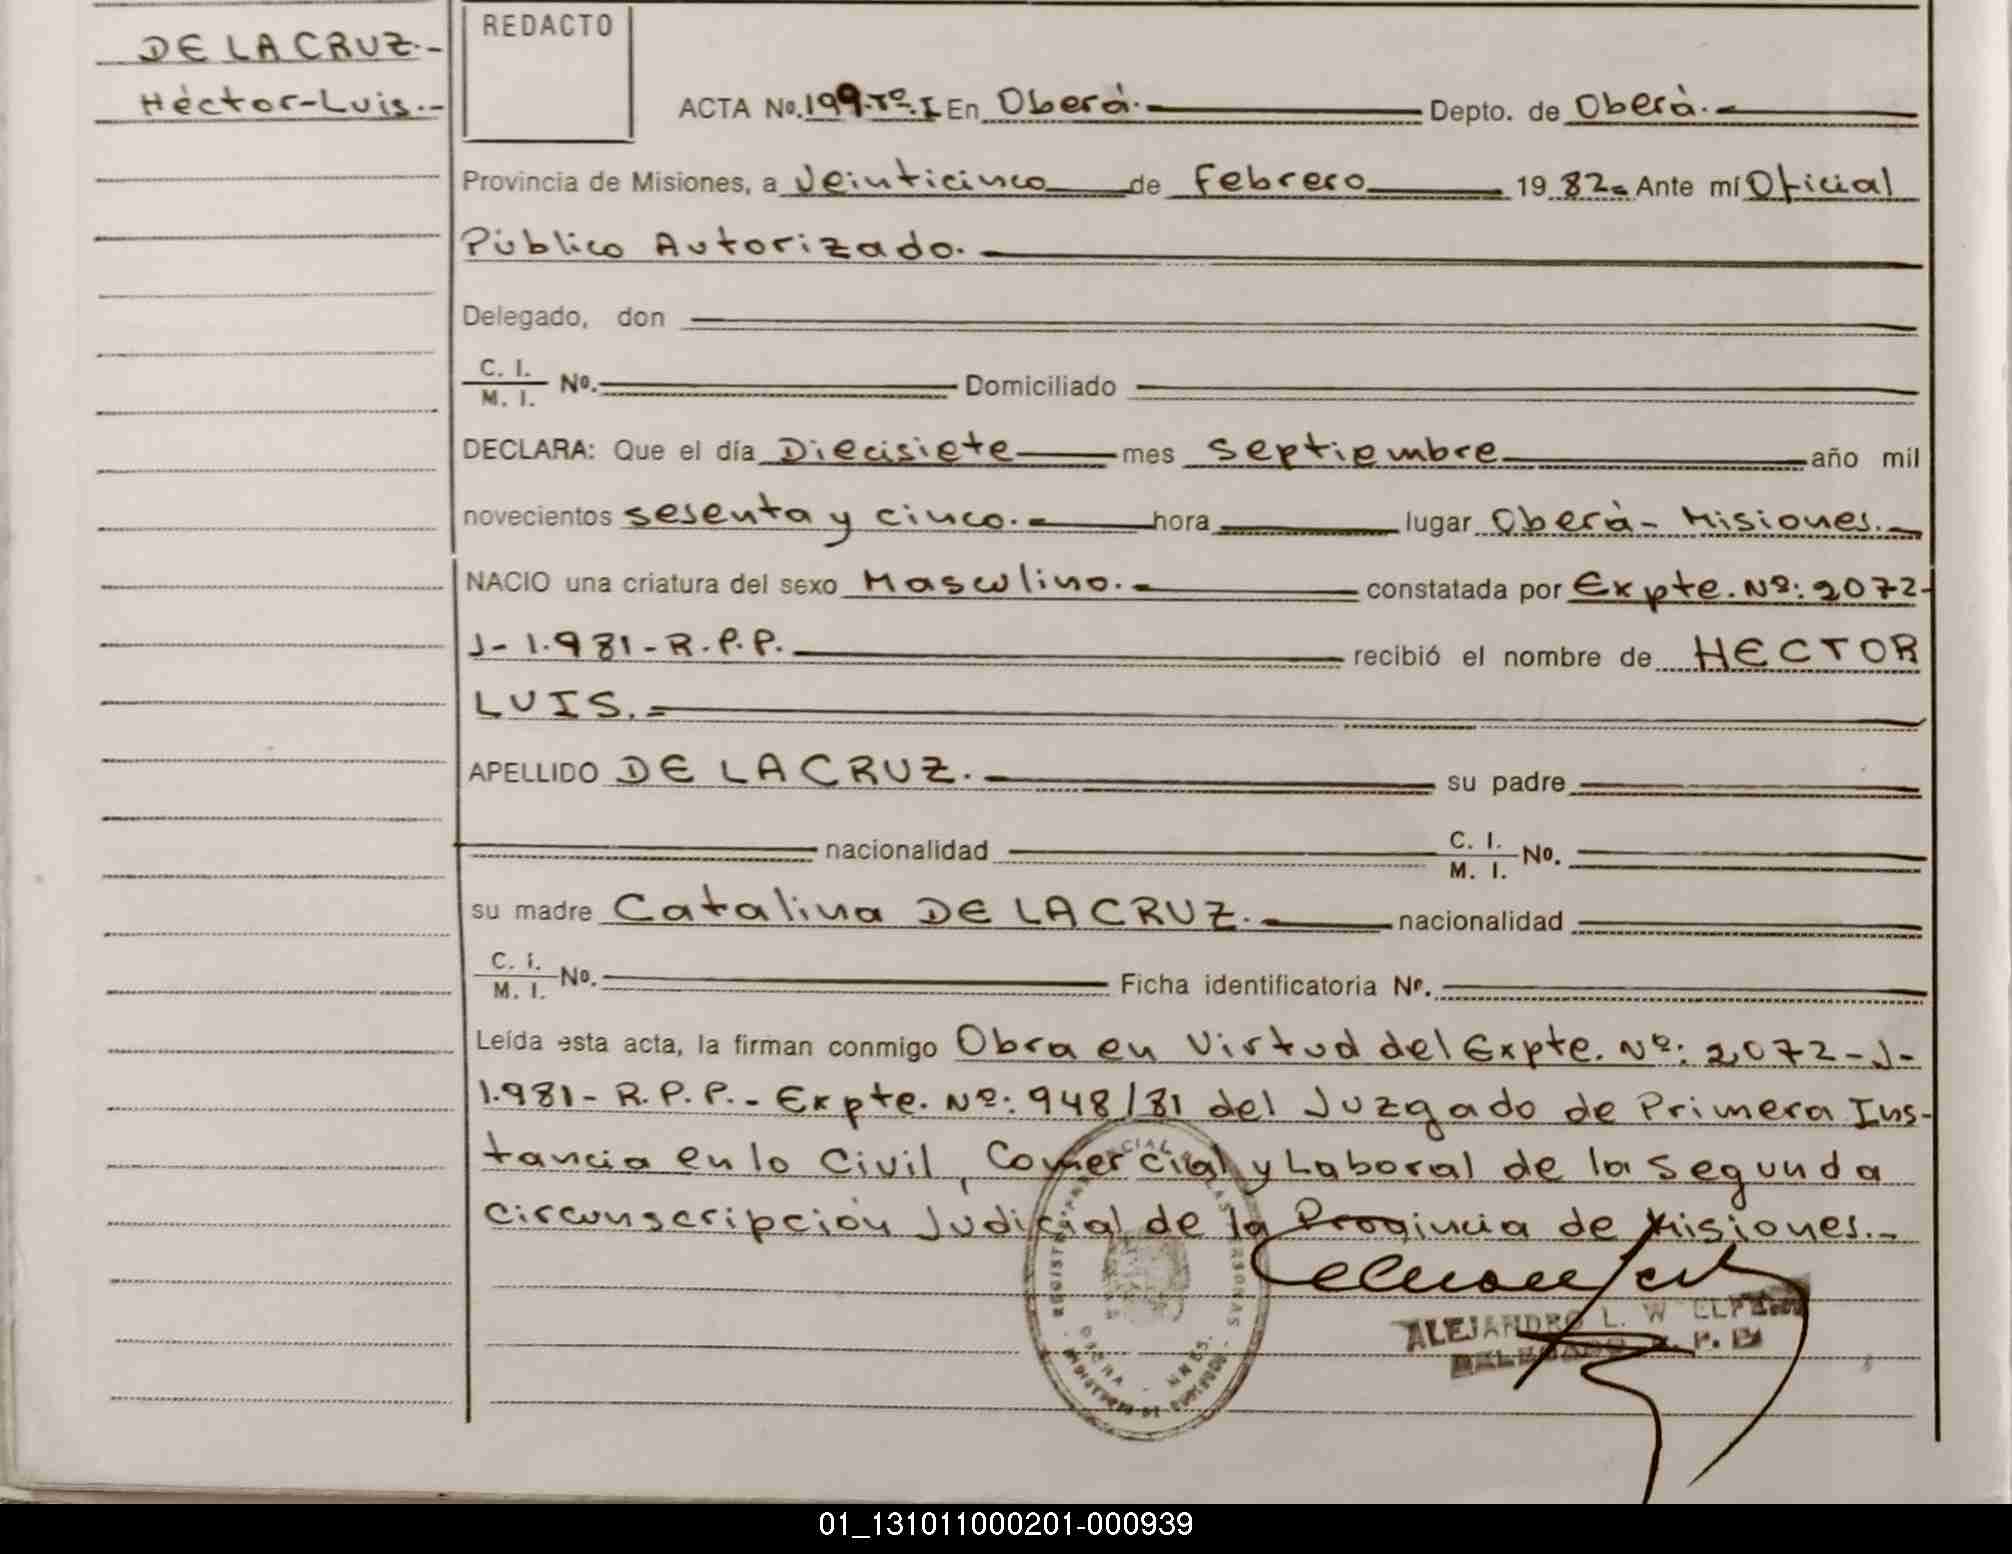 DE LA CRUZ.-
Héctor-Luis.-
REDACTO
ACTA No. 199-Tº.I En Oberá. Depto. de Oberá.
Provincia de Misiones, a Veinticinco de Febrero 19 82 Ante mí Oficial
Público Autorizado.
Delegado, don
C. I.
M. I. No. Domiciliado
DECLARA: Que el día Diecisiete mes Septiembre año mil
novecientos sesenta y cinco. hora lugar Oberá- Misiones.
NACIO una criatura del sexo Masculino. constatada por Expte. Nº: 2072-
J-1.981-R.P.P. recibió el nombre de HECTOR
LUIS.
APELLIDO DE LA CRUZ. su padre
nacionalidad C. I.
M. I. No.
su madre Catalina DE LA CRUZ. nacionalidad
C. I.
M. I. No. Ficha identificatoria Nº.
Leída esta acta, la firman conmigo Obra en Virtud del Expte. Nº: 2,072-J-
1.981- R.P.P.- Expte. Nº: 948/81 del Juzgado de Primera Ins-
tancia en lo Civil, Comercial y Laboral de la segunda
circunscripción Judicial de la Provincia de Misiones.-
ALEJANDRO L. W
OBERA - MNES.
01_131011000201-000939